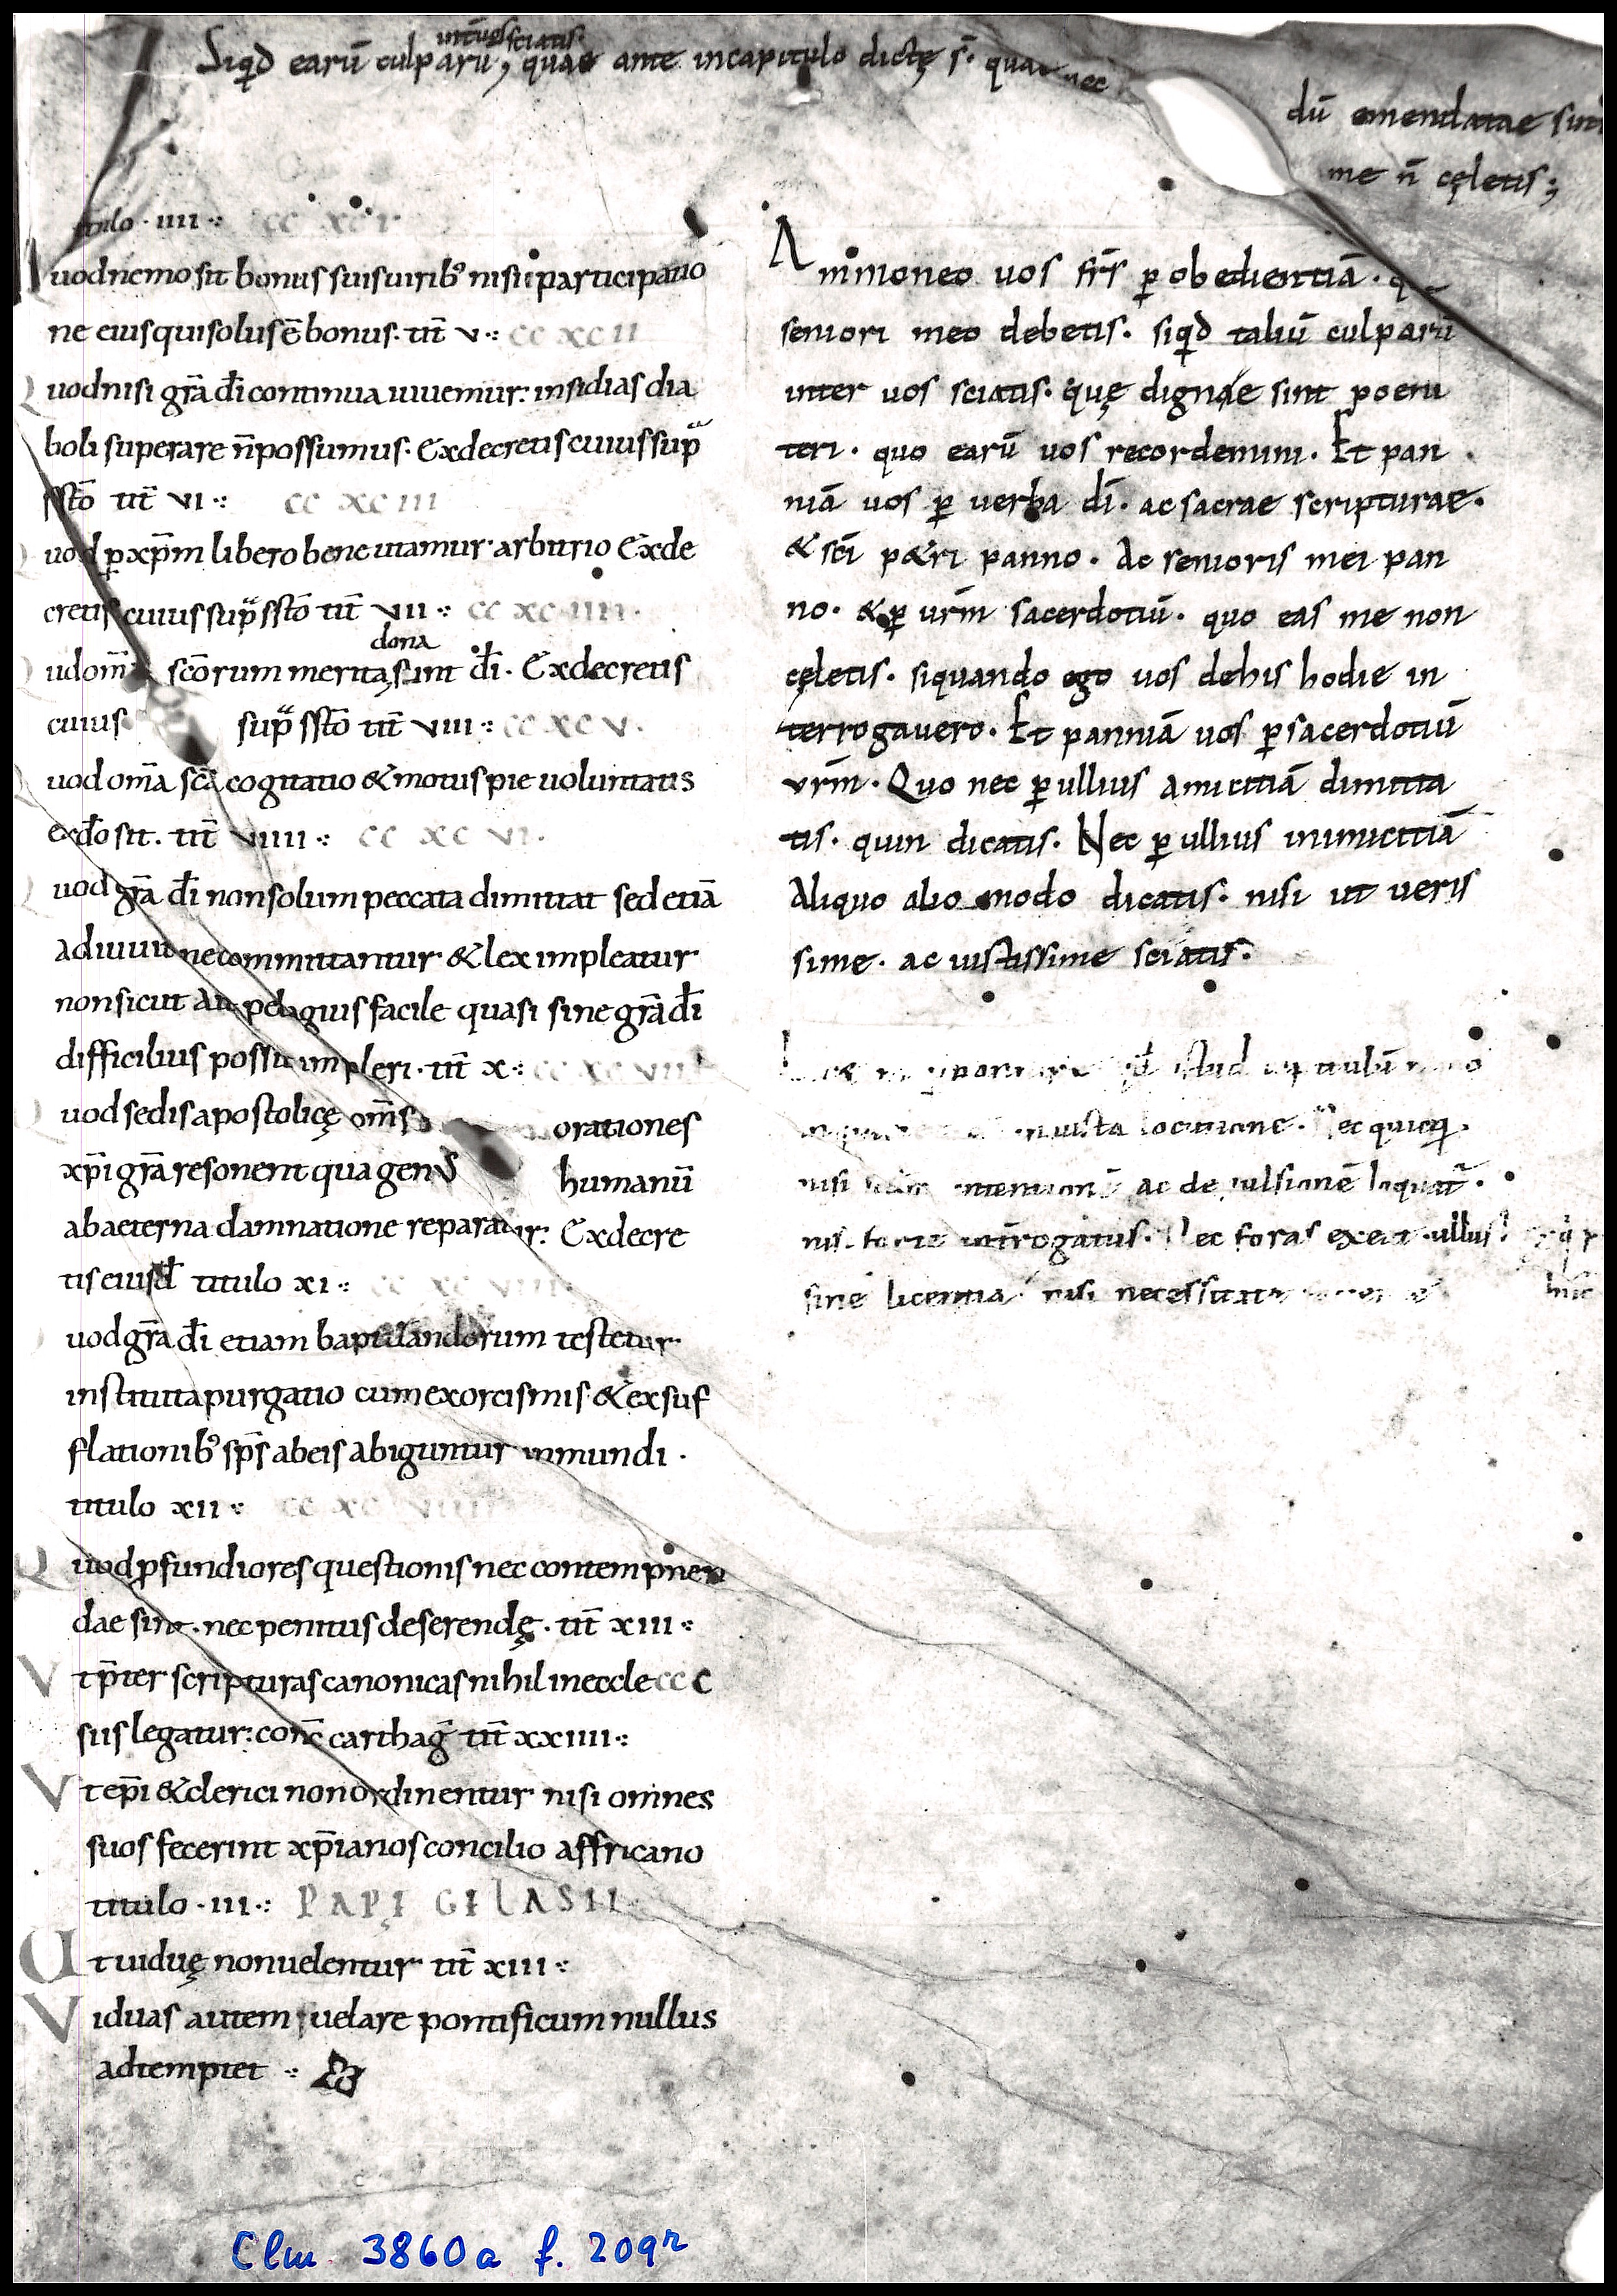 intuos sciatis
Siq̄d earū culparū, quae ante incapitulo dictę s̄· quae nec
dū emendatae sint
me n̄ cęletis;
titulo · IIII ·: CC XC I
uodnemo sit bonus suisuirib; nisi participatio
ne eiusquisolus ē bonus· tīt V ·: CC XC II
Quodnisi grā dī continua iuuemur: insidias dia
boli superare n̄ possumus· Exdecretis cuius sup̄
sstō tīt VI ·: CC XC III
uod ꝑ xp̄m libero bene utamur arbitrio Exde
cretis cuius sup̄ sstō tīt VII ·: CC XC IIII ·
dona
udom̄a scōrum merita sint dī· Exdecretis
cuius sup̄ sstō tīt VIII ·: CC XC V ·
Quod om̄a scā cogitatio & motus pie uoluntatis
exdō sit· tīt VIIII ·: CC XC VI ·
uod grā dī nonsolum peccata dimittat sed etiā
adiuuit necommittantur & lex impleatur
nonsicut ait pelagius facile quasi sine grā dī
difficilius possit impleri· tīt X ·: CC XC VII
uodsedis apostolicę om̄s orationes
xp̄i grā resonent qua genus humanū
abaeterna damnatione reparatur: Exdecre
tis eiusd̄ titulo XI ·: CC XC VIII
uod grā dī etiam baptizandorum testetur
instituta purgatio cum exorcismis & exsuf
flationib; sp̄s abeis abiguntur inmundi ·
titulo XII ·: CC XC VIIII
Quod ꝓfundiores questionis nec contempnen
dae sint· nec penitus deserendę· tīt XIII ·:
Vt p̄ter scripturas canonicas nihil ineccle CCC
siis legatur: conc̄ carthag̅ tīt XXIIII ·:
Vt ep̄i & clerici non ordinentur nisi omnes
suos fecerint xp̄ianos concilio affricano
titulo · III ·: PAPĘ GILASII
Ut uiduę nonuelentur tīt XIII ·:
Viduas autem uelare pontificum nullus
adtemptet ·:
Ammoneo uos frs̄ ꝑ obedientiā·
seniori meo debetis· siq̄d taliū culparū
inter uos sciatis· quę dignae sint poeni
teri· quo earū uos recordemini· Et pan
niā uos ꝑ uerba dī· ac sacrae scripturae·
& scī petri panno· Ac senioris mei pan
no· & ꝑ urm̄ sacerdotiū· quo eas me non
cęletis· siquando ego uos dehis hodie in
terrogauero· Et panniā uos ꝑ sacerdotiū
urm̄· Quo nec ꝑ ullius amicitiā dimitta
tis· quin dicatis· Nec ꝑ ullius inimicitiā
Aliquo alio modo dicatis· nisi ut ueris
sime· ac iustissime sciatis·
istud
iniusta locutione· Nec quicq̄
nisi ac de loquat̄·
nisi forte int̄rogatus· Nec foras exeat ullus
sine licentia nisi necessitate
Clm 3860a f. 209r